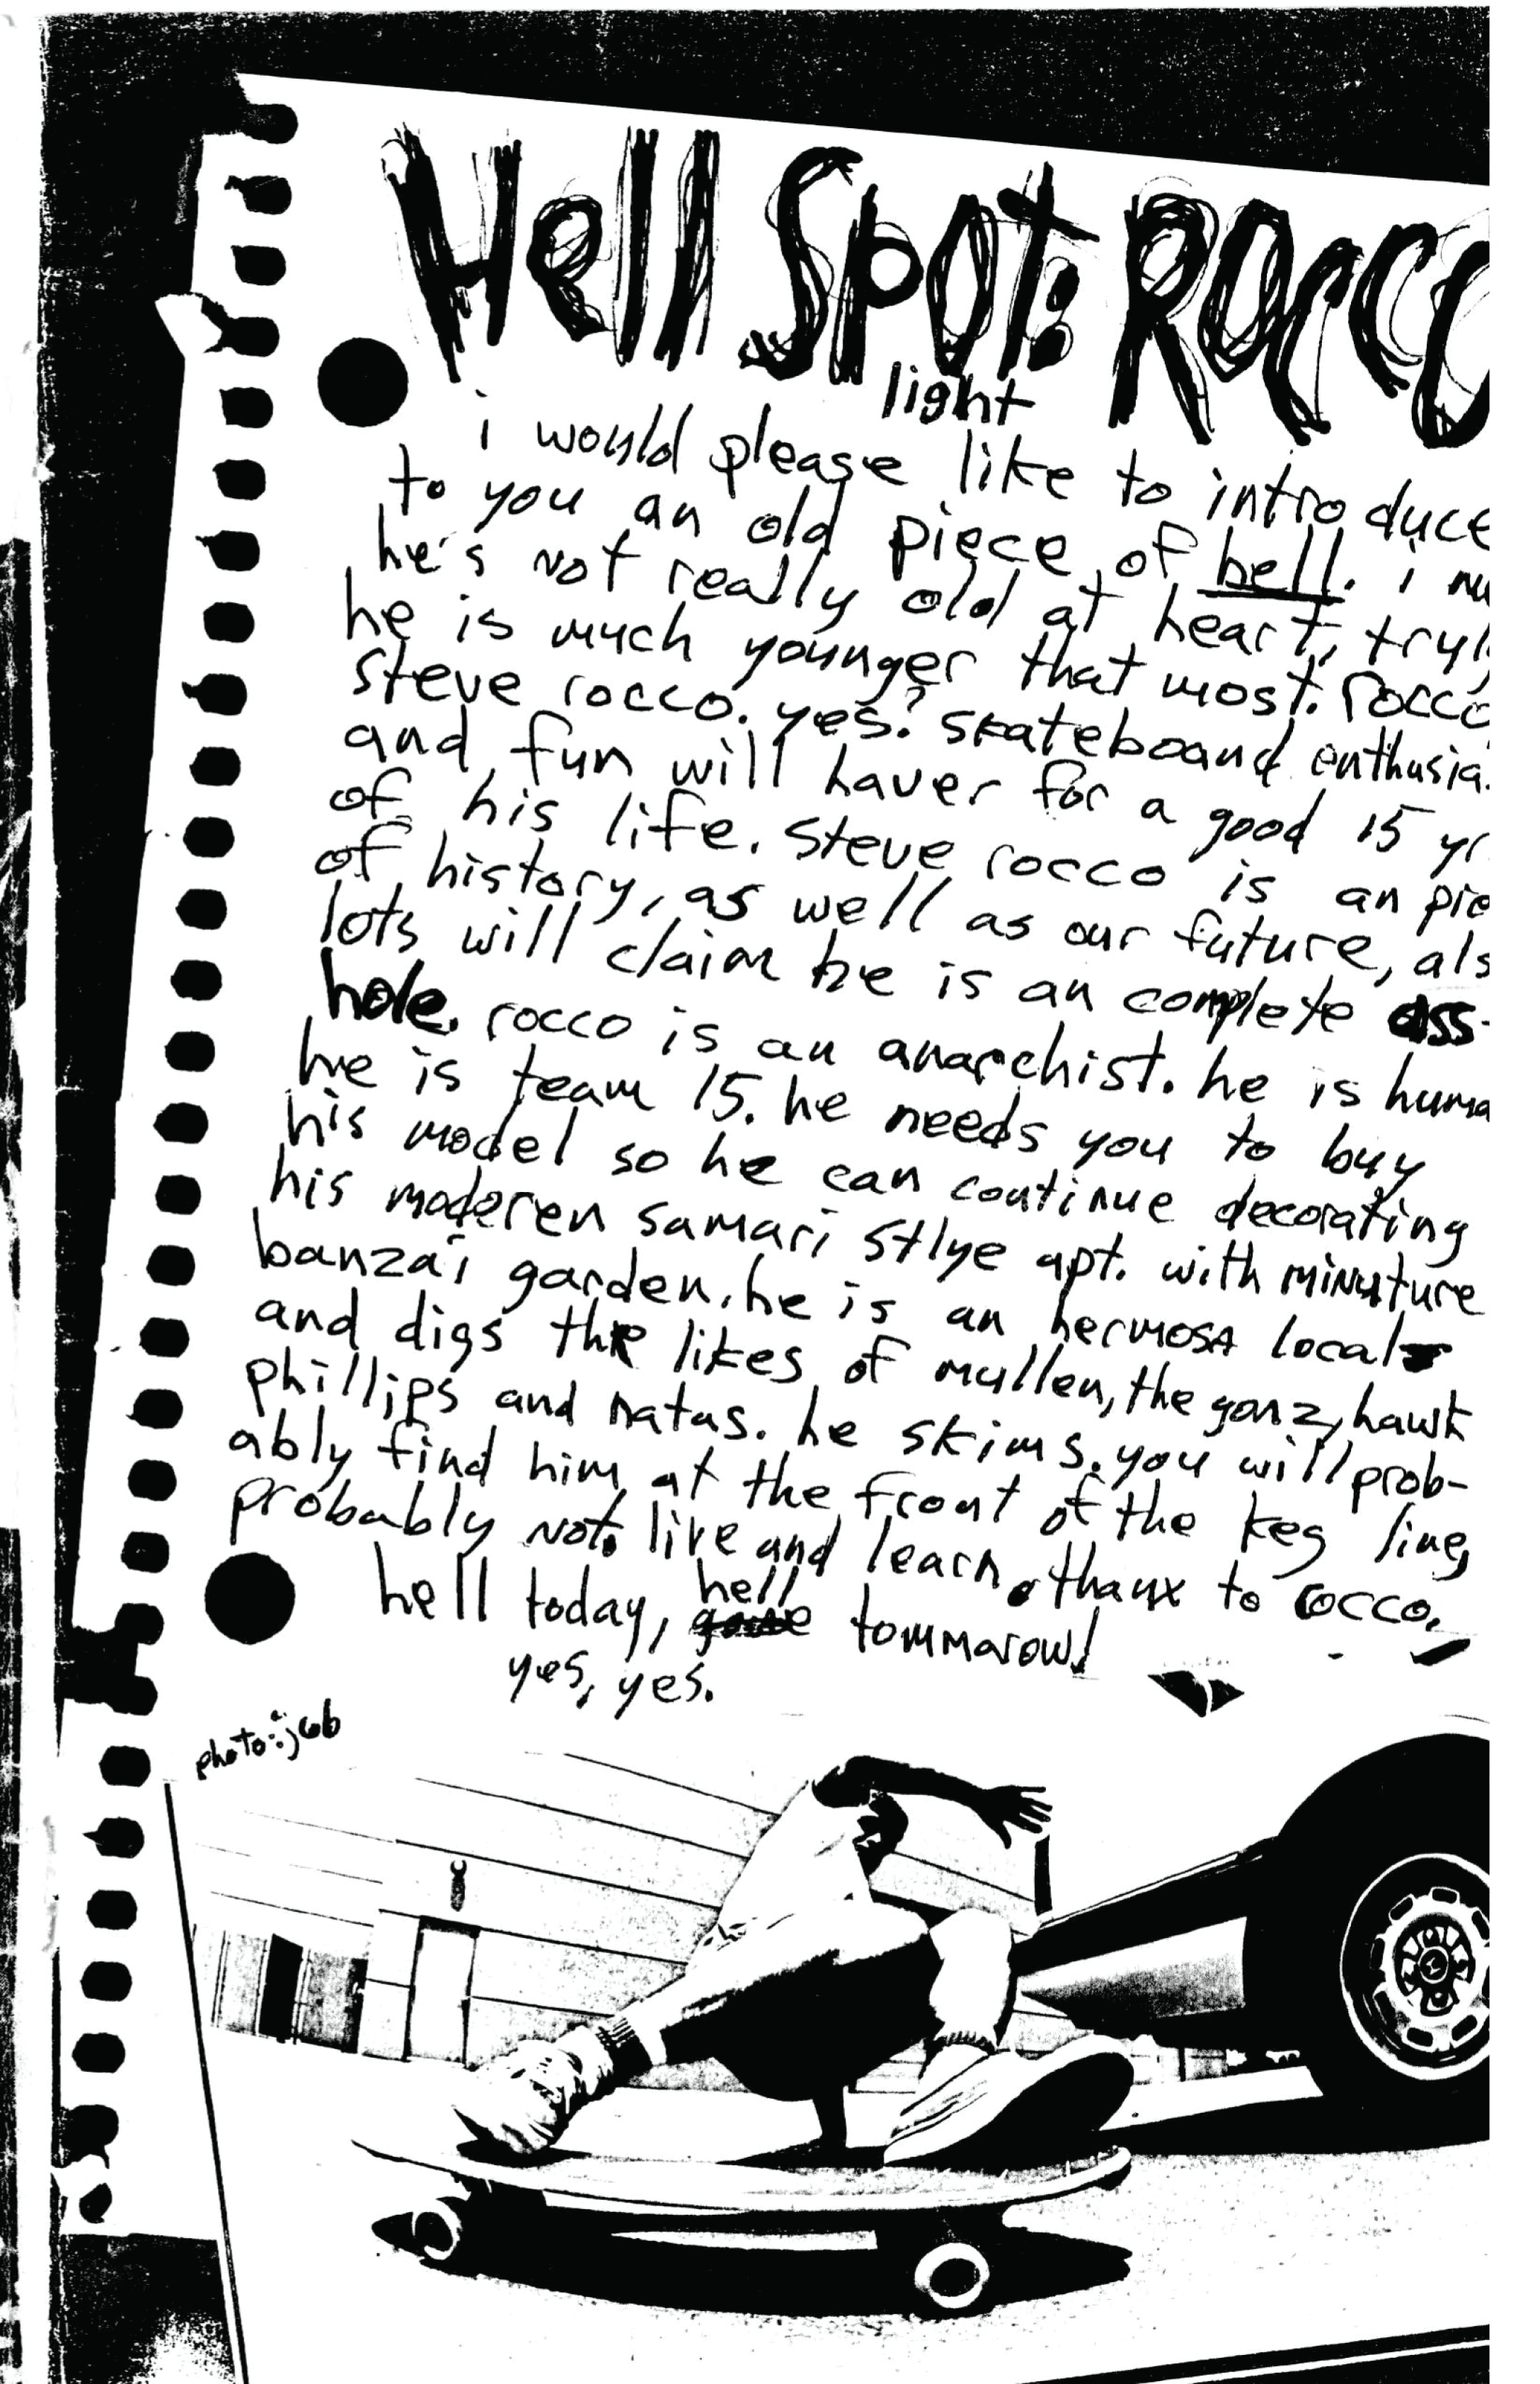 Hell Spot: Rocco
light
i would please like to introduce
to you an old piece of hell. i
he's not really old at heart,
he is much younger that most. rocco
steve rocco. yes? skateboand
and fun will haver for a good 15
of his life. steve rocco is an
of history, as well as our future,
lots will claim he is an complete ass-
hole. rocco is an anarchist. he is
he is team 15. he needs you to buy
his model so he can continue decorating
his moderen samari stlye apt. with minuture
banzai garden. he is an hermosa local
and digs the likes of mullen, the gonz, hawk
phillips and natas. he skims. you will prob-
ably find him at the front of the keg line,
probably not. live and learn. thanx to rocco.
hell today, hell tommarow!
yes, yes.
photo: